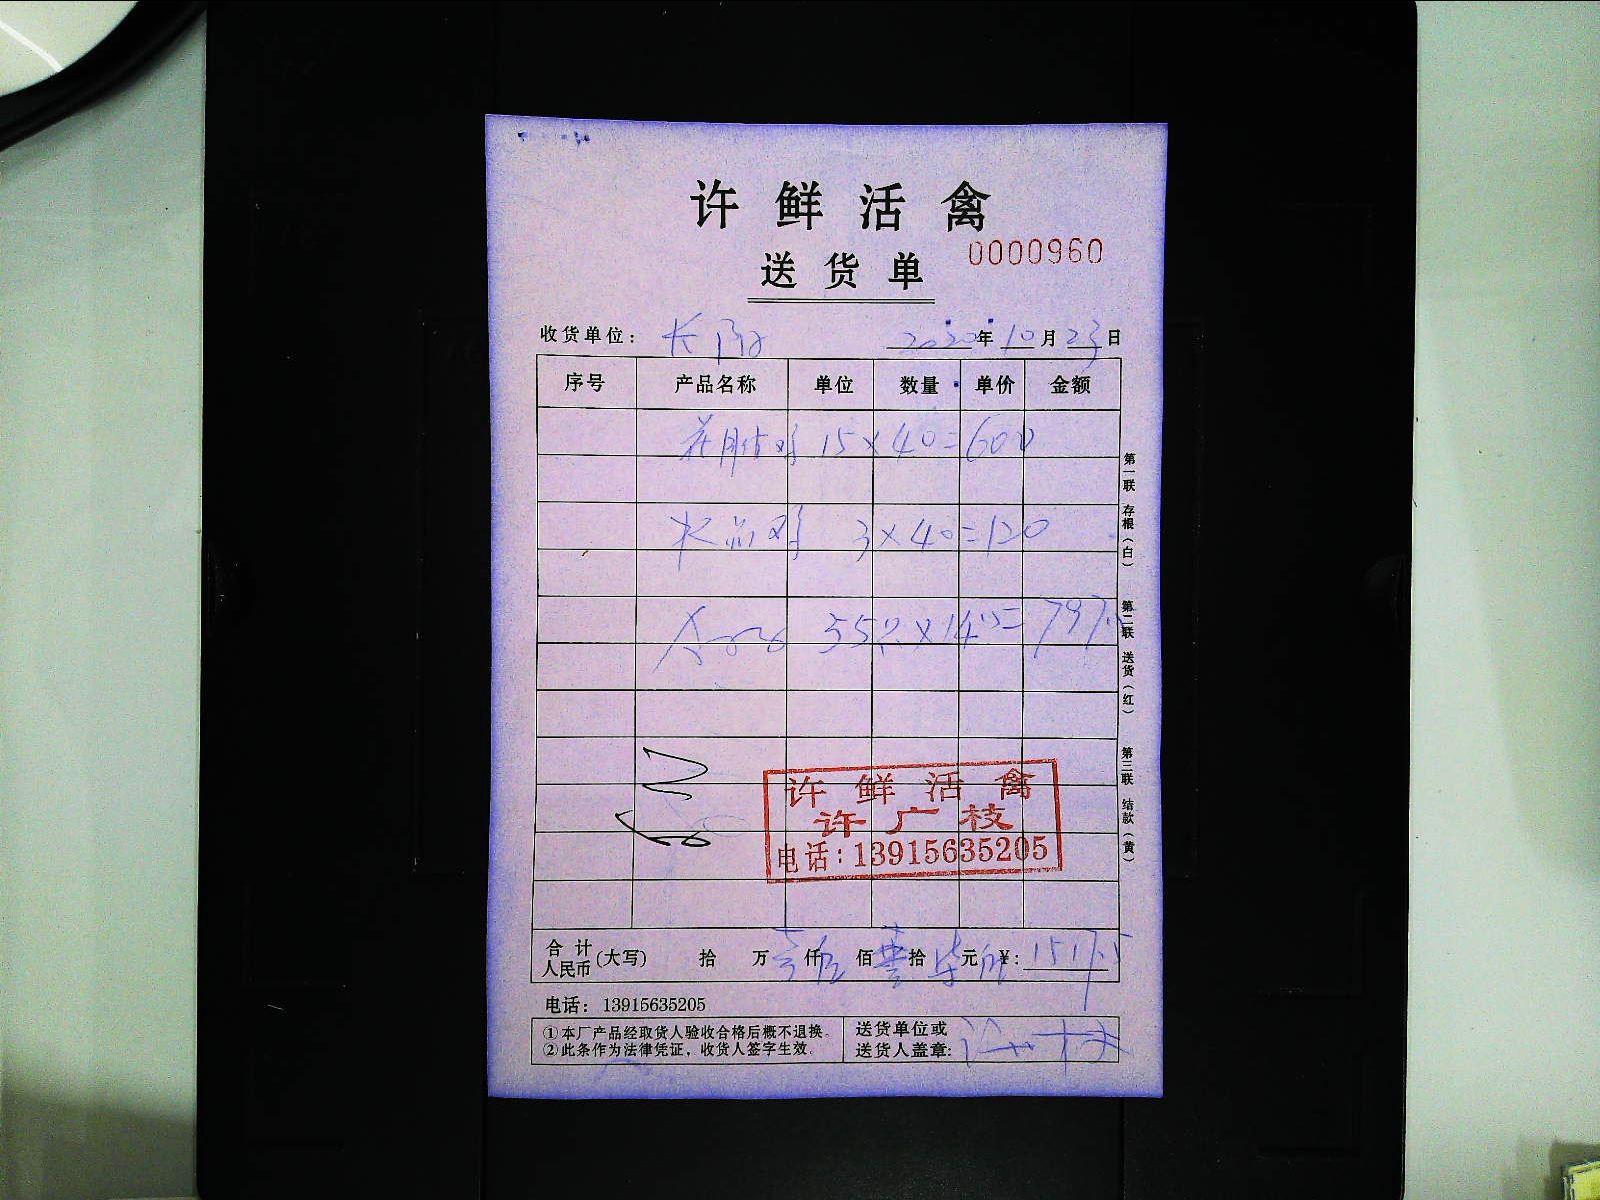 许鲜活禽
送货单
0000960
收货单位： 2020年10月23日
序号 产品名称 单位 数量 单价 金额
15×40=600
3×40=120
55只×14.5=797.5
第一联 存根（白）
第二联 送货（红）
第三联 结款（黄）
许鲜活禽
许广枝
电话：13915635205
合计人民币(大写) 拾 万 仟 佰 拾 元 ¥：1517.5
电话： 13915635205
①本厂产品经取货人验收合格后概不退换。
②此条作为法律凭证，收货人签字生效。
送货单位或
送货人盖章：